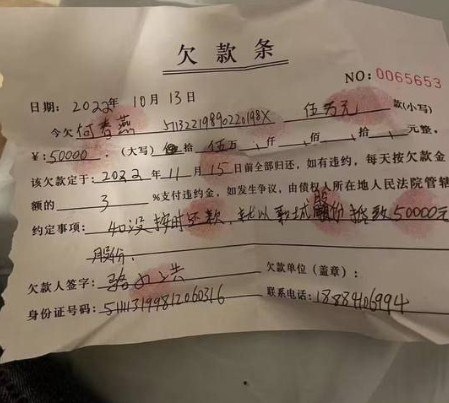 欠款条
NO：0065653
日期：2022年10月13日
今欠何香燕 51132219890220198X 伍万元 款(小写)
¥：50000 (大写) 拾 伍万 仟 佰 拾 元整。
该欠款定于：2022年11月15日前全部归还，如有违约，每天按欠款金
额的 3 %支付违约金，如发生争议，由债权人所在地人民法院管辖
约定事项：如没按时还款，就以 股份抵款50000元
股份.
欠款人签字： 欠款单位（盖章）：
身份证号码：511131199812060316 联系电话：18884106994